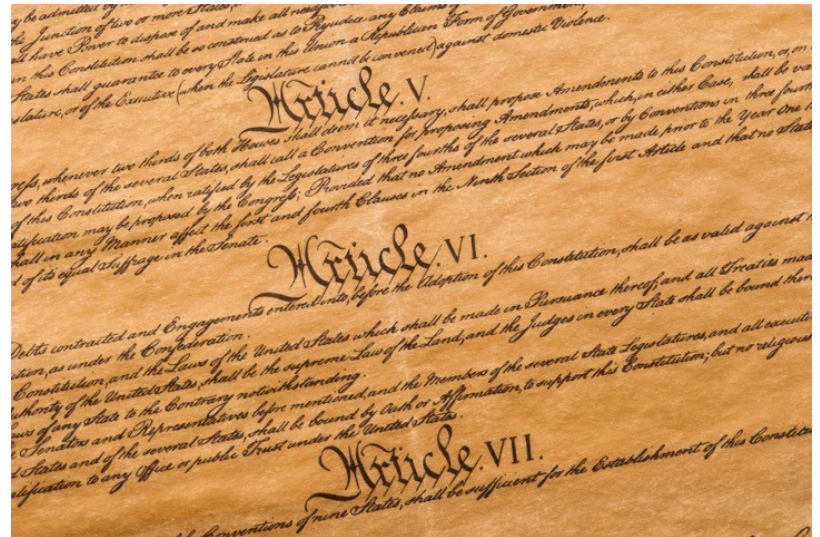 y be admitted by
he Junction of two or more States,
ll have Power to dispose of and make all needf
in this Constitution shall be so construed as to Prejudice any Claims of
States shall guarantee to every State in this Union a Republican Form of Government,
slature, or of the Executive (when the Legislature cannot be convened) against domestic Violence.
Article. V.
ress, whenever two thirds of both Houses shall deem it necessary, shall propose Amendments to this Constitution, or, on
two thirds of the several States, shall call a Convention for proposing Amendments, which, in either Case, shall be va
of this Constitution, when ratified by the Legislatures of three fourths of the several States, or by Conventions in three fourth
atification may be proposed by the Congress; Provided that no Amendment which may be made prior to the Year One
hall in any Manner affect the first and fourth Clauses in the Ninth Section of the first Article and that no State
d of its equal Suffrage in the Senate.
Article. VI.
Debts contracted and Engagements entered into, before the Adoption of this Constitution, shall be as valid against
tion, as under the Confederation.
Constitution, and the Laws of the United States which shall be made in Pursuance thereof; and all Treaties mad
uthority of the United States, shall be the supreme Law of the Land; and the Judges in every State shall be bound ther
aws of any State to the Contrary notwithstanding.
e Senators and Representatives before mentioned, and the Members of the several State Legislatures, and all executi
d States and of the several States, shall be bound by Oath or Affirmation, to support this Constitution; but no religious
alification to any Office or public Trust under the United States.
Article. VII.
Conventions of nine States, shall be sufficient for the Establishment of this Constitu